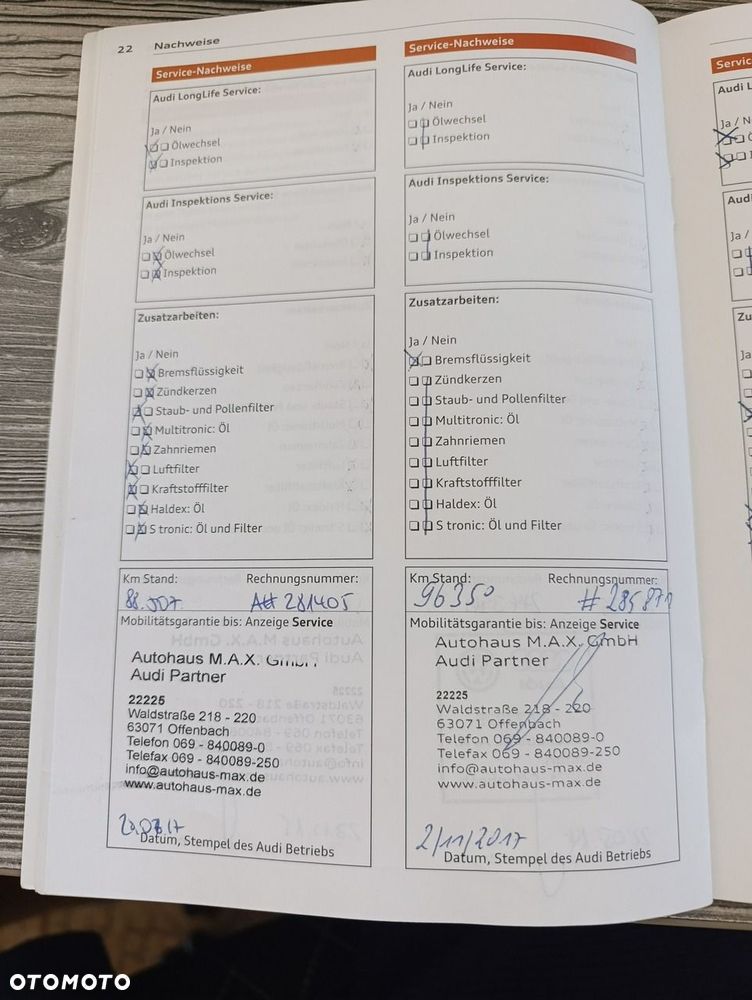 22 Nachweise
Service-Nachweise
Audi LongLife Service:
Ja / Nein
Ölwechsel
Inspektion
Audi Inspektions Service:
Ja / Nein
Ölwechsel
Inspektion
Zusatzarbeiten:
Ja / Nein
Bremsflüssigkeit
Zündkerzen
Staub- und Pollenfilter
Multitronic: Öl
Zahnriemen
Luftfilter
Kraftstofffilter
Haldex: Öl
S tronic: Öl und Filter
Km Stand: Rechnungsnummer:
281405
Mobilitätsgarantie bis: Anzeige Service
Autohaus M.A.X. GmbH
Audi Partner
22225
Waldstraße 218 - 220
63071 Offenbach
Telefon 069 - 840089-0
Telefax 069 - 840089-250
info@autohaus-max.de
www.autohaus-max.de
Datum, Stempel des Audi Betriebs
Service-Nachweise
Audi LongLife Service:
Ja / Nein
Ölwechsel
Inspektion
Audi Inspektions Service:
Ja / Nein
Ölwechsel
Inspektion
Zusatzarbeiten:
Ja / Nein
Bremsflüssigkeit
Zündkerzen
Staub- und Pollenfilter
Multitronic: Öl
Zahnriemen
Luftfilter
Kraftstofffilter
Haldex: Öl
S tronic: Öl und Filter
Km Stand: Rechnungsnummer:
96350 # 285871
Mobilitätsgarantie bis: Anzeige Service
Autohaus M.A.X. GmbH
Audi Partner
22225
Waldstraße 218 - 220
63071 Offenbach
Telefon 069 - 840089-0
Telefax 069 - 840089-250
info@autohaus-max.de
www.autohaus-max.de
2/11/2017
Datum, Stempel des Audi Betriebs
OTOMOTO